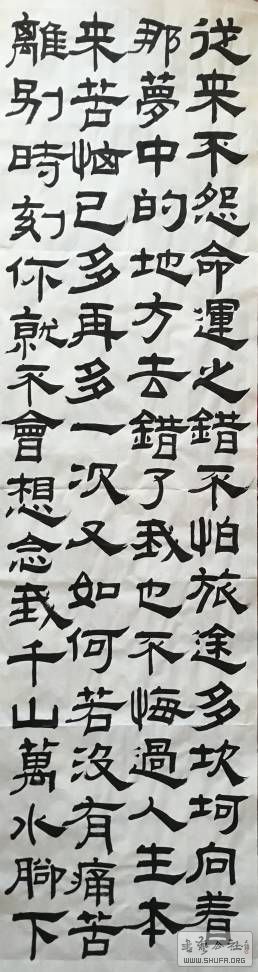 従来不怨命運之錯不怕旅途多坎坷向着
那夢中的地方去錯了我也不悔過人生本
来苦恼已多再多一次又如何若没有痛苦
離别時刻你就不會想念我千山萬水腳下
WWW.SHUFA.ORG